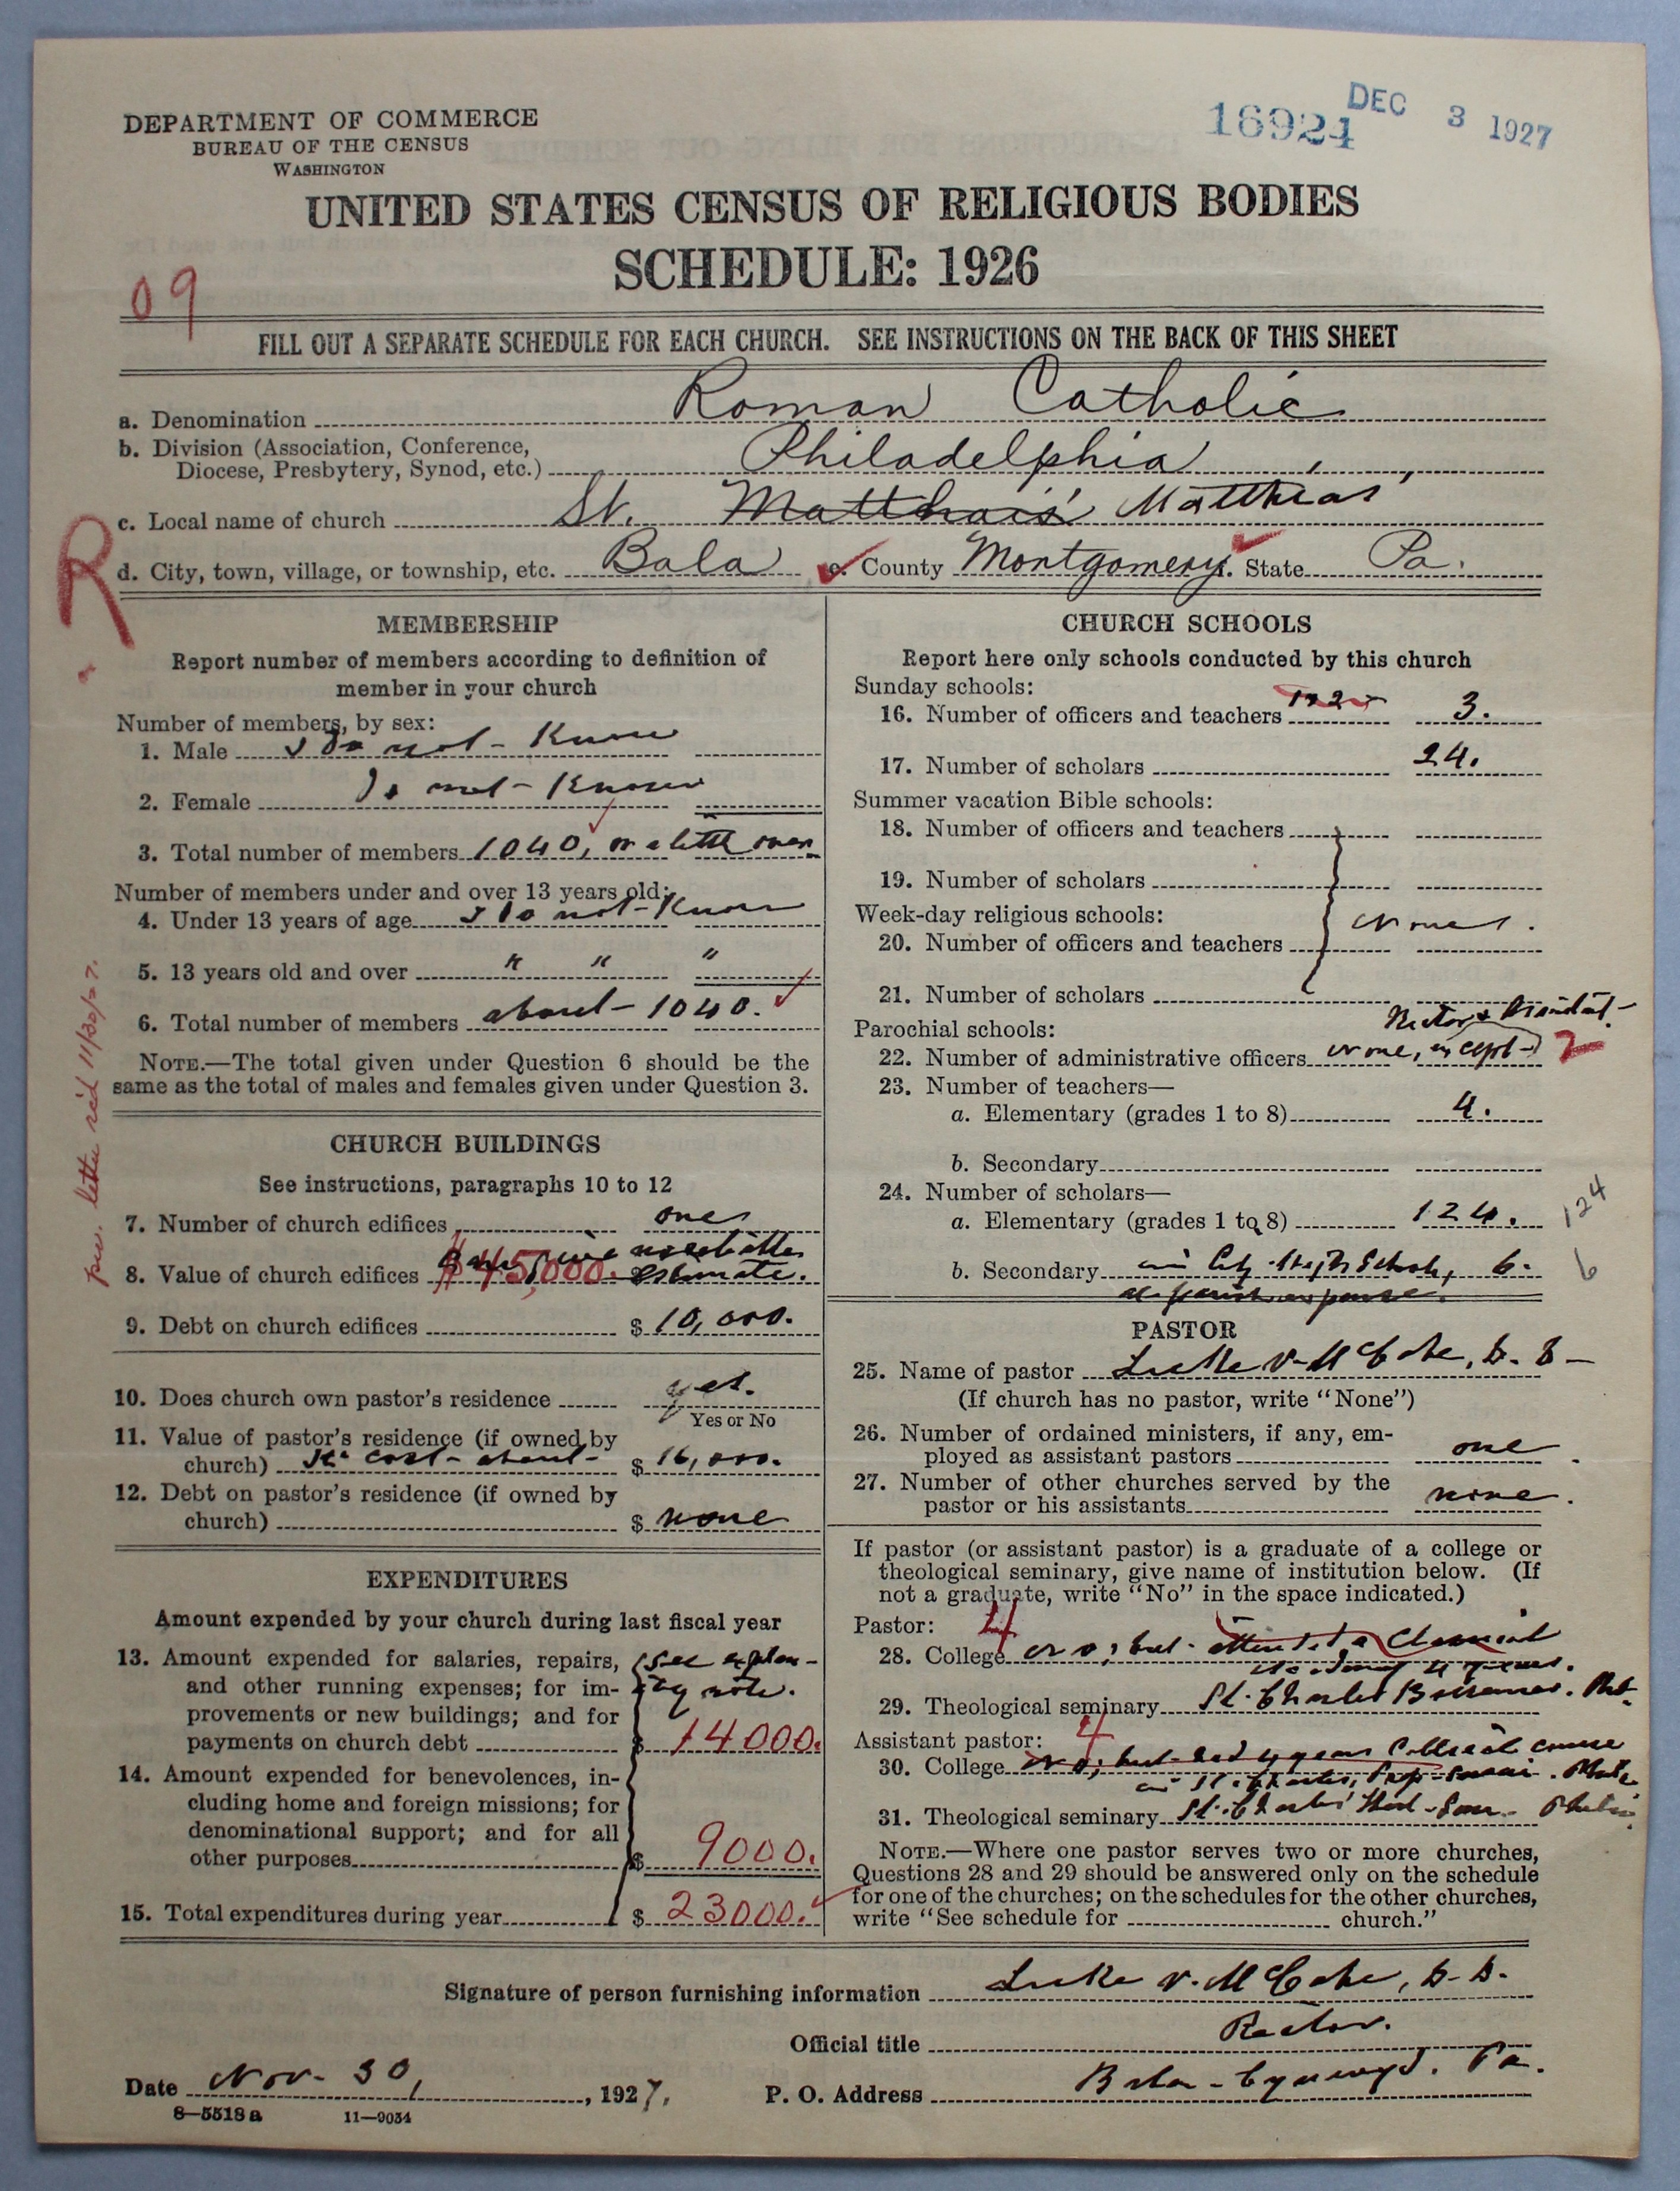 DEPARTMENT OF COMMERCE
BUREAU OF THE CENSUS
WASHINGTON
16924 DEC 3 1927
UNITED STATES CENSUS OF RELIGIOUS BODIES
SCHEDULE: 1926
09
FILL OUT A SEPARATE SCHEDULE FOR EACH CHURCH. SEE INSTRUCTIONS ON THE BACK OF THIS SHEET
a. Denomination Roman Catholic
b. Division (Association, Conference,
Diocese, Presbytery, Synod, etc.) Philadelphia
c. Local name of church St. Matthais' Matthias'
R
d. City, town, village, or township, etc. Bala e. County Montgomery f. State Pa.
MEMBERSHIP
Report number of members according to definition of
member in your church
Number of members, by sex:
1. Male I do not know
2. Female Do not know
3. Total number of members 1040, or a little over
Number of members under and over 13 years old:
4. Under 13 years of age I do not know
5. 13 years old and over " " "
6. Total number of members about 1040.
NOTE.—The total given under Question 6 should be the
same as the total of males and females given under Question 3.
letter rec'd 11/30/27.
CHURCH BUILDINGS
See instructions, paragraphs 10 to 12
7. Number of church edifices one
8. Value of church edifices $45,000. estimate.
9. Debt on church edifices $ 10,000.
10. Does church own pastor's residence yes.
Yes or No
11. Value of pastor's residence (if owned by
church) It cost about $ 16,000.
12. Debt on pastor's residence (if owned by
church) $ none
EXPENDITURES
Amount expended by your church during last fiscal year
13. Amount expended for salaries, repairs, See explan-
and other running expenses; for im- note.
provements or new buildings; and for
payments on church debt $ 14000.
14. Amount expended for benevolences, in-
cluding home and foreign missions; for
denominational support; and for all
other purposes $ 9000.
15. Total expenditures during year $ 23000.
CHURCH SCHOOLS
Report here only schools conducted by this church
Sunday schools:
16. Number of officers and teachers 3.
17. Number of scholars 24.
Summer vacation Bible schools:
18. Number of officers and teachers
19. Number of scholars
Week-day religious schools:
none.
20. Number of officers and teachers
21. Number of scholars
Parochial schools:
Rector & Assistant.
22. Number of administrative officers none, except 2
23. Number of teachers—
a. Elementary (grades 1 to 8) 4.
b. Secondary
24. Number of scholars—
a. Elementary (grades 1 to 8) 124. 124
b. Secondary in City High School, 6. 6
at parish expense.
PASTOR
25. Name of pastor Luke V. McCabe, D. D.
(If church has no pastor, write "None")
26. Number of ordained ministers, if any, em-
ployed as assistant pastors one
27. Number of other churches served by the
pastor or his assistants none.
If pastor (or assistant pastor) is a graduate of a college or
theological seminary, give name of institution below. (If
not a graduate, write "No" in the space indicated.)
Pastor: 4
28. College No; but attended a Classical
Academy 4 years.
29. Theological seminary St. Charles Borromeo. Phil.
Assistant pastor: 4
30. College No; but had 4 years Collegiate course
in St. Charles, Prep. Phila
31. Theological seminary St. Charles' Theol. Sem. Phila.
NOTE.—Where one pastor serves two or more churches,
Questions 28 and 29 should be answered only on the schedule
for one of the churches; on the schedules for the other churches,
write "See schedule for church."
Signature of person furnishing information Luke V. McCabe, D. D.
Official title Rector.
Date Nov. 30, 1927. P. O. Address Bala-Cynwyd. Pa.
8—5518a 11—9034